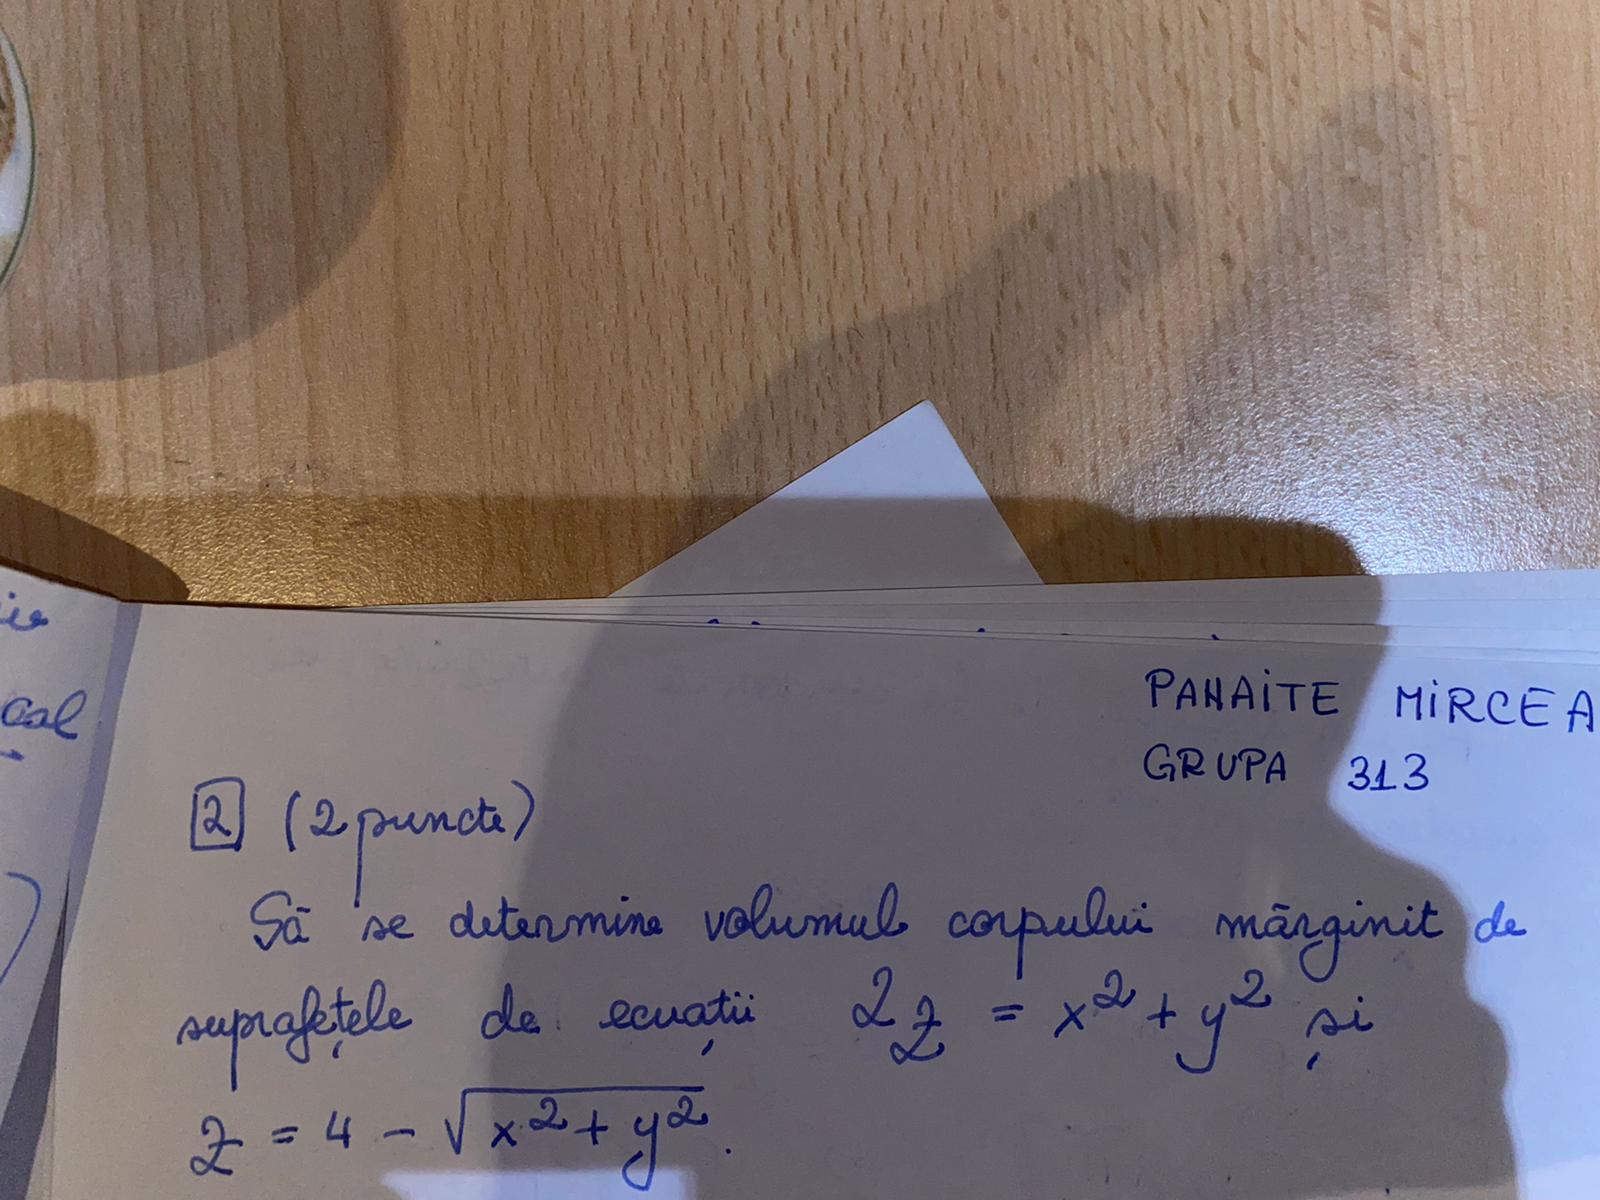 cal
PANAITE MIRCEA
GRUPA 313
2 (2 puncte)
Să se determine volumul corpului mărginit de
suprafețele de ecuații 2z = x² + y² și
z = 4 - √(x² + y²).